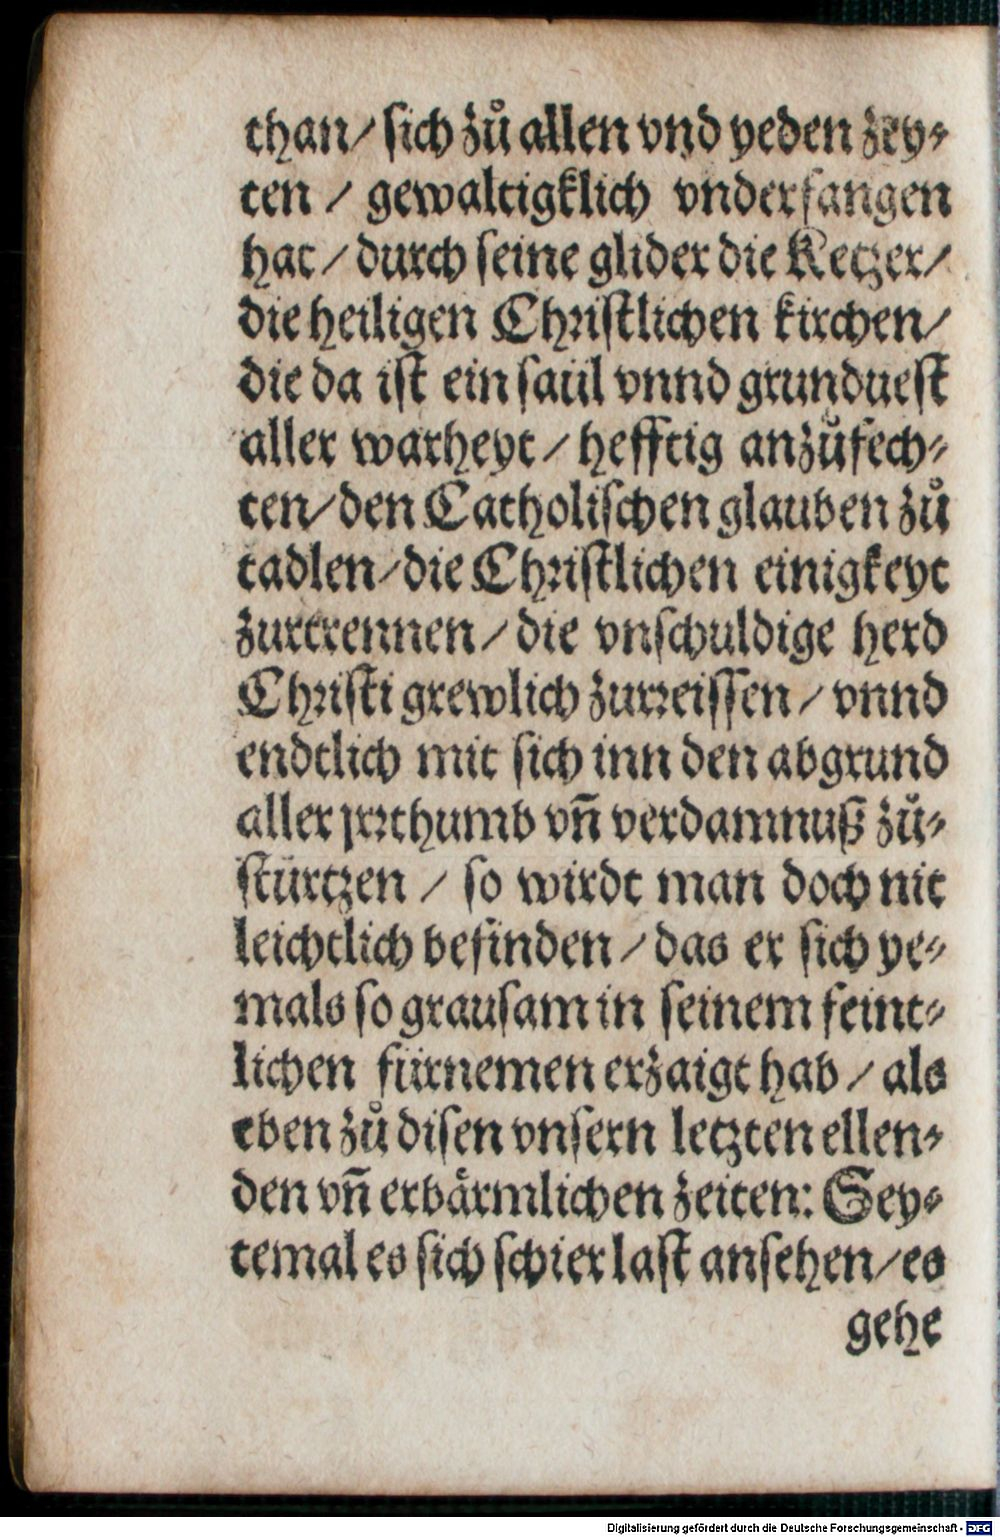 than / sich zů allen vnd yeden zey⸗
ten / gewaltigklich vnderfangen
hat / durch seine glider die Ketzer /
die heiligen Christlichen kirchen /
die da ist ein saül vnnd grunduest
aller warheyt / hefftig anzůfech⸗
ten / den Catholischen glauben zů
tadlen / die Christlichen einigkeyt
zurtrennen / die vnschuldige herd
Christi grewlich zurreissen / vnnd
endtlich mit sich inn den abgrund
aller jrrthumb vñ verdamnuß zů⸗
stürtzen / so wirdt man doch nit
leichtlich befinden / das er sich ye⸗
mals so grausam in seinem feint⸗
lichen fürnemen erzaigt hab / als
eben zů disen vnsern letzten ellen⸗
den vñ erbärmlichen zeiten: Sey⸗
temal es sich schier last ansehen / es
gehe
Digitalisierung gefördert durch die Deutsche Forschungsgemeinschaft - DFG